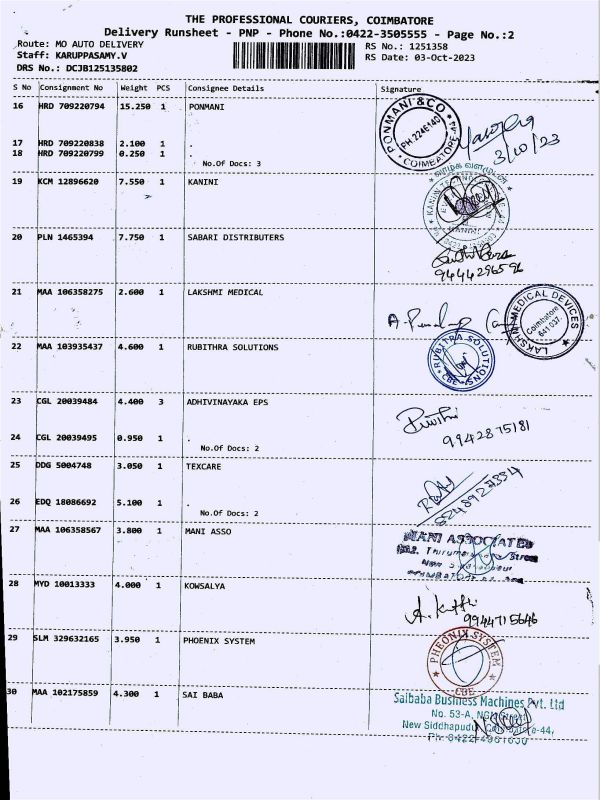 THE PROFESSIONAL COURIERS, COIMBATORE
Delivery Runsheet - PNP - Phone No.:0422-3505555 - Page No.:2
Route: MO AUTO DELIVERY
RS No.: 1251358
Staff: KARUPPASAMY.V
RS Date: 03-Oct-2023
DRS No.: DCJB125135802
S No Consignment No Weight PCS Consignee Details Signature
16 HRD 709220794 15.250 1 PONMANI
PONMANI & CO
COIMBATORE
3/10/23
17 HRD 709220838 2.100 1 .
18 HRD 709220799 0.250 1 .
No.Of Docs: 3
19 KCM 12896620 7.550 1 KANINI
20 PLN 1465394 7.750 1 SABARI DISTRIBUTERS
9444296596
21 MAA 106358275 2.600 1 LAKSHMI MEDICAL
LAKSHMI MEDICAL DEVICES
Coimbatore
641 037.
22 MAA 103935437 4.600 1 RUBITHRA SOLUTIONS
RUBITRA SOLUTIONS
CBE
23 CGL 20039484 4.400 3 ADHIVINAYAKA EPS
9942875181
24 CGL 20039495 0.950 1 .
No.Of Docs: 2
25 DDG 5004748 3.050 1 TEXCARE
26 EDQ 18086692 5.100 1 .
No.Of Docs: 2
27 MAA 106358567 3.800 1 MANI ASSO
MANI ASSOCIATES
28 MYD 10013333 4.000 1 KOWSALYA
9944715646
29 SLM 329632165 3.950 1 PHOENIX SYSTEM
PHEONIX SYSTEM
CBE
30 MAA 102175859 4.300 1 SAI BABA
Saibaba Business Machines Pvt. Ltd
No. 53-A, NGN
New Siddhapudur, Coimbatore-44,